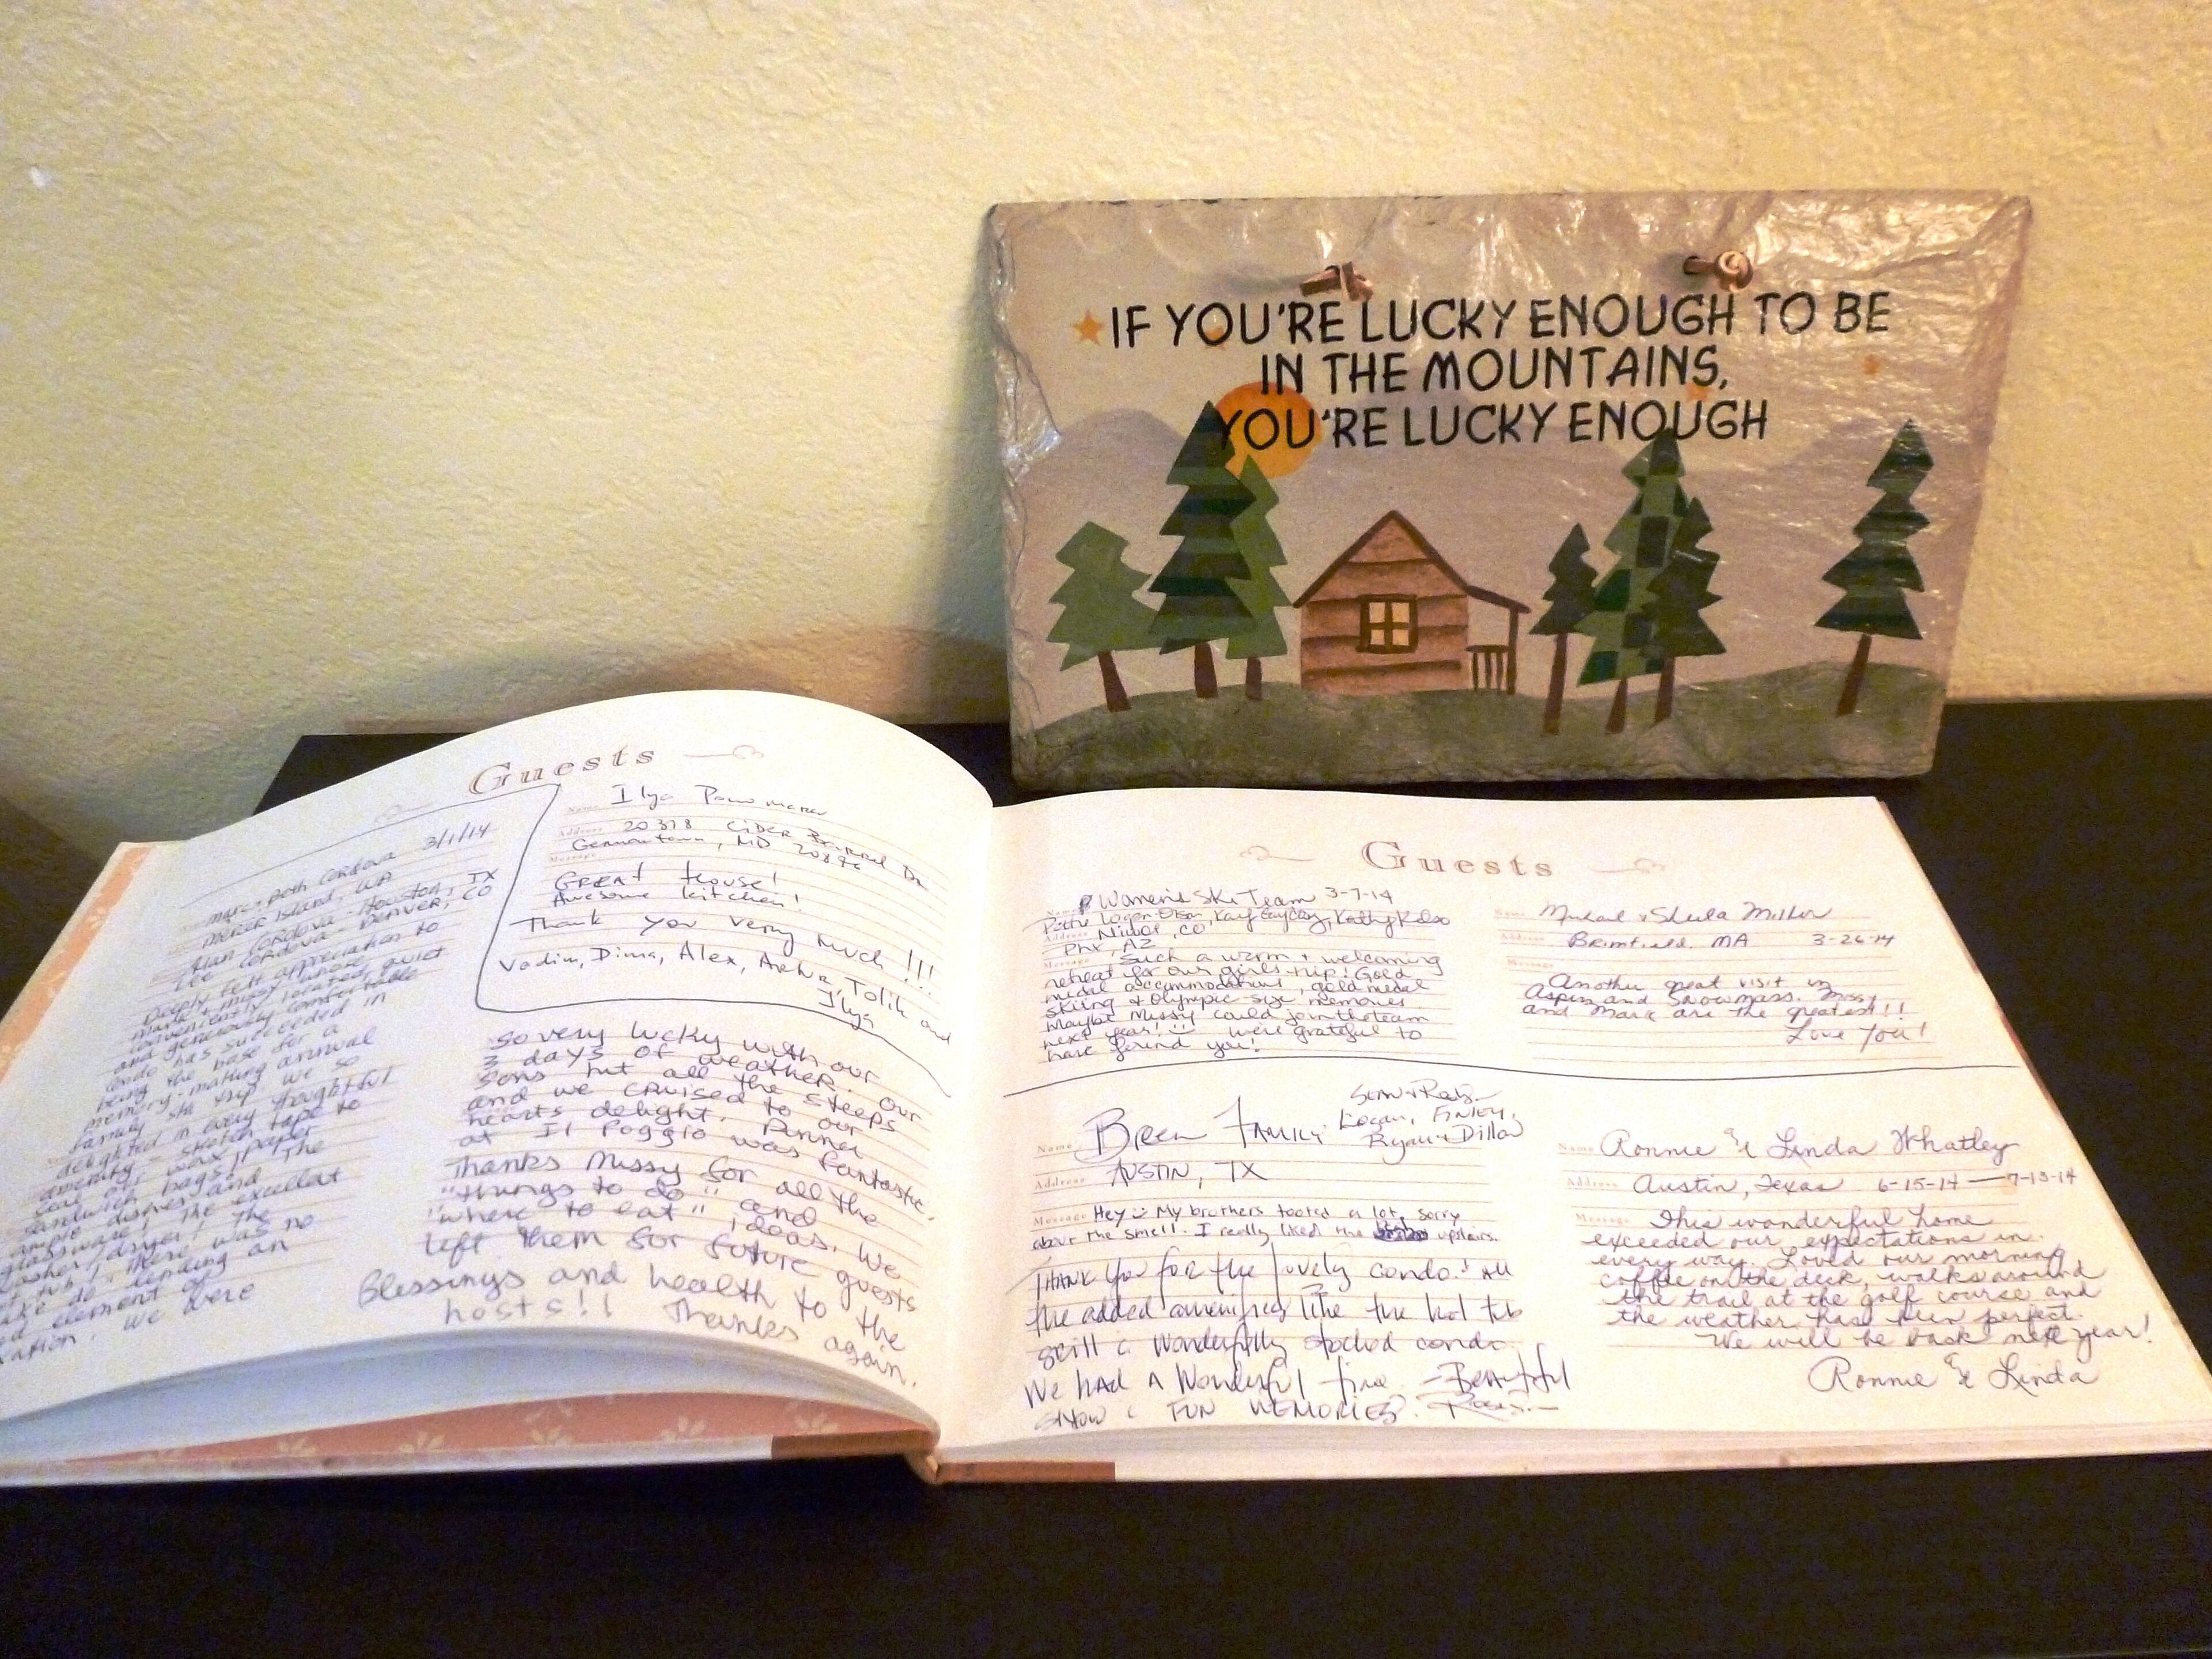 IF YOU'RE LUCKY ENOUGH TO BE
IN THE MOUNTAINS,
YOU'RE LUCKY ENOUGH
Guests
Marc + Beth Cordova 3/1/14
Mercer Island, WA
Alan Cordova - Houston, TX
Lee Cordova - Denver, CO
Deeply felt appreciation to
Mark + Missy whose quiet
conveniently located,
and generously comfortable
condo has succeeded in
being the base for a
memory-making annual
family ski trip. We so
delighted in every thoughtful
amenity - sketch tape to
sandwich bags! paper
ample dishes and The
glassware! The excellent
washer/dryer! The
hot tub! There was no
lending an
element of
We were
Name Ilya
Address 20378 Cider Barrel Dr
Germantown, MD 20876
Message
GREAT House!
Awesome kitchen!
Thank you very much!!!
Vadim, Dima, Alex, Artur, Tolik and
Ilya
so very lucky with our
3 days of weather. Our
sons hit all the steeps
and we cruised to our
hearts delight. Dinner
at Il Poggio was fantastic.
Thanks Missy for all the
"things to do" and
"where to eat" ideas. We
left them for future guests
Blessings and health to the
hosts!! Thanks again.
Guests
Women's Ski Team 3-7-14
Logan Olson, Kathy Kelso
Address Niwot, CO
Phx, AZ
Message Such a warm + welcoming
retreat for our girls trip! Gold
medal accommodations, gold medal
skiing & Olympic-size memories.
Maybe Missy could join the team
next year! We're grateful to
have found you!
Name Michael & Sheila Miller
Address Brimfield, MA 3-26-14
Message
Another great visit in
Aspen and Snowmass. Missy
and Mark are the greatest!!!
Love You!
Name Breen Family: Sean +
Logan, Finley,
Ryan + Dillon
Address Austin, TX
Message Hey :) My brothers tooted a lot, sorry
about the smell. I really liked the upstairs.
Thank you for the lovely condo! All
the added amenities like the hot tub
wonderfully stocked condo.
We had a wonderful time - Beautiful
snow & FUN MEMORIES.
Name Ronnie & Linda Whatley
Address Austin, Texas 6-15-14 — 7-13-14
Message This wonderful home
exceeded our expectations in
every way. Loved our morning
coffee on the deck, walks around
the trail at the golf course and
the weather has been perfect.
We will be back next year!
Ronnie & Linda